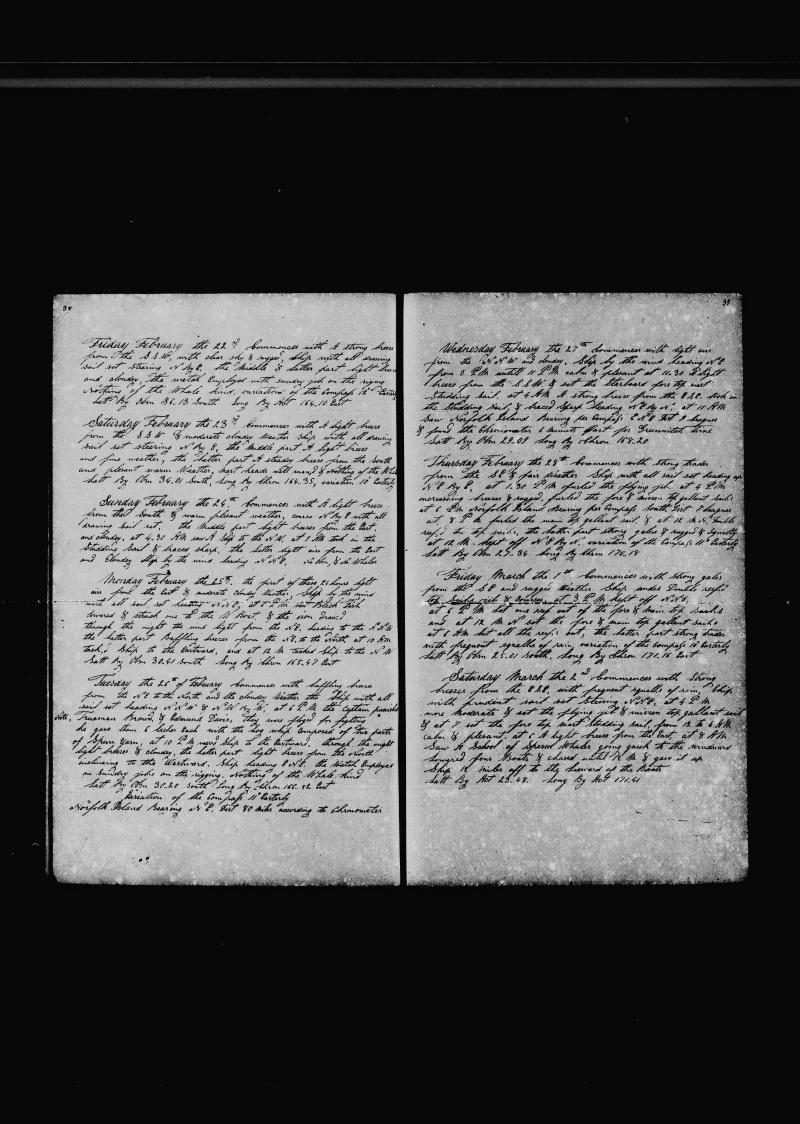 38
Friday February the 22nd Commences with A strong breeze
from the S.S.W. with clear sky & rugged, Ship with all drawing
sail set steering N By E, the Middle & latter part light breeze
and cloudy, the watch Employed with sundry job on the riging
Nothing of the Whale kind, variation of the Compass 12° Easterly
Latt By Obsn 36.13 South Long By Act 164.10 East
Saturday February the 23rd Commences with A light breeze
from the S.S.W & moderate cloudy Weather Ship with all drawing
sail set steering N By E, the Middle part A light breeze
and fine weather, the latter part A steaday breeze from the South
and plesent warm Weather, Mast heads well man,d & Nothing of the Whale
Latt By Obsn 34.01 South, Long By Chron 164.35, variation 12° Easterly
Sunday February the 24th Commences with A light breeze
from the South & warm plesent weather, corse N By E with all
drawing Sail set, the Middle part light breeze from the East,
and cloudy, at 4.30 AM Ship to the N.W, at 7 AM took in the
Studding Sail & braces sharp, the latter light airs from the East
and Cloudy Ship by the wind heading N N E, No Obsn, & No Whales
Monday February the 25th, the first of these 24 hours light
airs from the East & moderate cloudy Weather, Ship by the wind
with all sail set heading N.N.E, at 5 P.M. saw Black Fish
lowered & struck one to the W Boat & the iron Draw,d
through the night the wind light from the NE, heading to the N.N.W
the latter part Baffling breezes from the NE, to the North, at 10 AM
tack,d Ship to the Eastward, and at 12 M tacked Ship to the N.W
Latt By Obsn 30.41 South Long By Chron 165.47 East
Tuesday the 26th of February Commences with baffling breeze
from the N.E to the North and the cloudey Weather the Ship with all
sail set heading N.N.W & N.W By W. at 6 P.M the Captain punished
Note, Freeman Brown, & Edmund Davis. They were floged for fighting
he gave them 6 lashes Each with the Log whip Composed of two parts
of Spun yarn, at 10 P.M Ship to the Eastward, through the night
light breezes & cloudey, the latter part light breeze from the North
inclineing to the Westward. Ship heading E N.E. the Watch Employed
on Sunday jobs on the rigging. Nothing of the Whale kind
Latt By Obsn 30.20 South Long By Chron 166.02 East
Variation of the Compass 11° Easterly
Norfolk Island Bearing N E. Dist 80 miles according to Chronometer
39
Wednesday February the 27th Commences with light airs
from the N.N.W and cloudey, Ship by the wind heading N.E
from 8 P.M until 11 P.M calm & plesent at 11.30 A light
breeze from the S.S.W. & set the Starboard fore top mast
Studding Sail. at 4 AM A strong breeze from the E.S.E. took in
the Studding Sail & braced Sharp heading N.E By N. at 11 AM
Saw Norfolk Island Bearing per Compass E.N.E Dist 9 leagues
& found the Chronometer 6 minuts fast for Greenwitch time
Latt By Obsn 29.08 Long By Chron 168.20
Thursday February the 28th Commences with strong trades
from the S.E & fair Weather Ship with all sail set heading up
N.E By E. at 1.30 P.M furled the flying jib. at 4 P.M
increasing breezes & rugged, furled the fore & mizen top gallant sails
at 6 P.M Norfolk Island Bearing per Compass South Dist 7 leagues
at, 8 P.M furled the main top gallant sail, & at 12 M.N. Double
reef,d the top sails, the latter part strong gales & rugged & squally
at 12 M. kept off N.E By N. variation of the Compass 11° Easterly
Latt By Obsn 27.34 Long By Chron 170.18
Friday March the 1st Commences with strong gales
from the S.E and rugged Weather Ship under Double reef,d
top Sails jib & Courses at 3 P.M kept off N.N.E,
at 5 P.M let one reef out of the fore & main top sails
and at 12 M N set the fore & main top gallant sails
at 5 AM let all the reefs out, the latter part strong trades
with frequent squalls of rain, variation of the Compass 11° Easterly
Latt By Obsn 25.01 South, Long By Chron 170.16 East
Saturday March the 2nd Commences with Strong
breezes from the E.S.E, with frequent squalls of rain, Ship
with prudent sail set Steering N.N.E, at 4 P.M
more Moderate & set the flying jib & mizen top gallant sail
& at 7 set the fore top mast Studding sail, from 12 to 6 AM
calm & plesent, at 6 A light breeze from the East, at 8 AM
Saw A School of Sperm Whales going quick to the windward
lowered four Boats & chased until 12 M & gave it up
Ship 12 miles off to the leeward of the Boats
Latt By Act 23.48. Long By Act 171.41